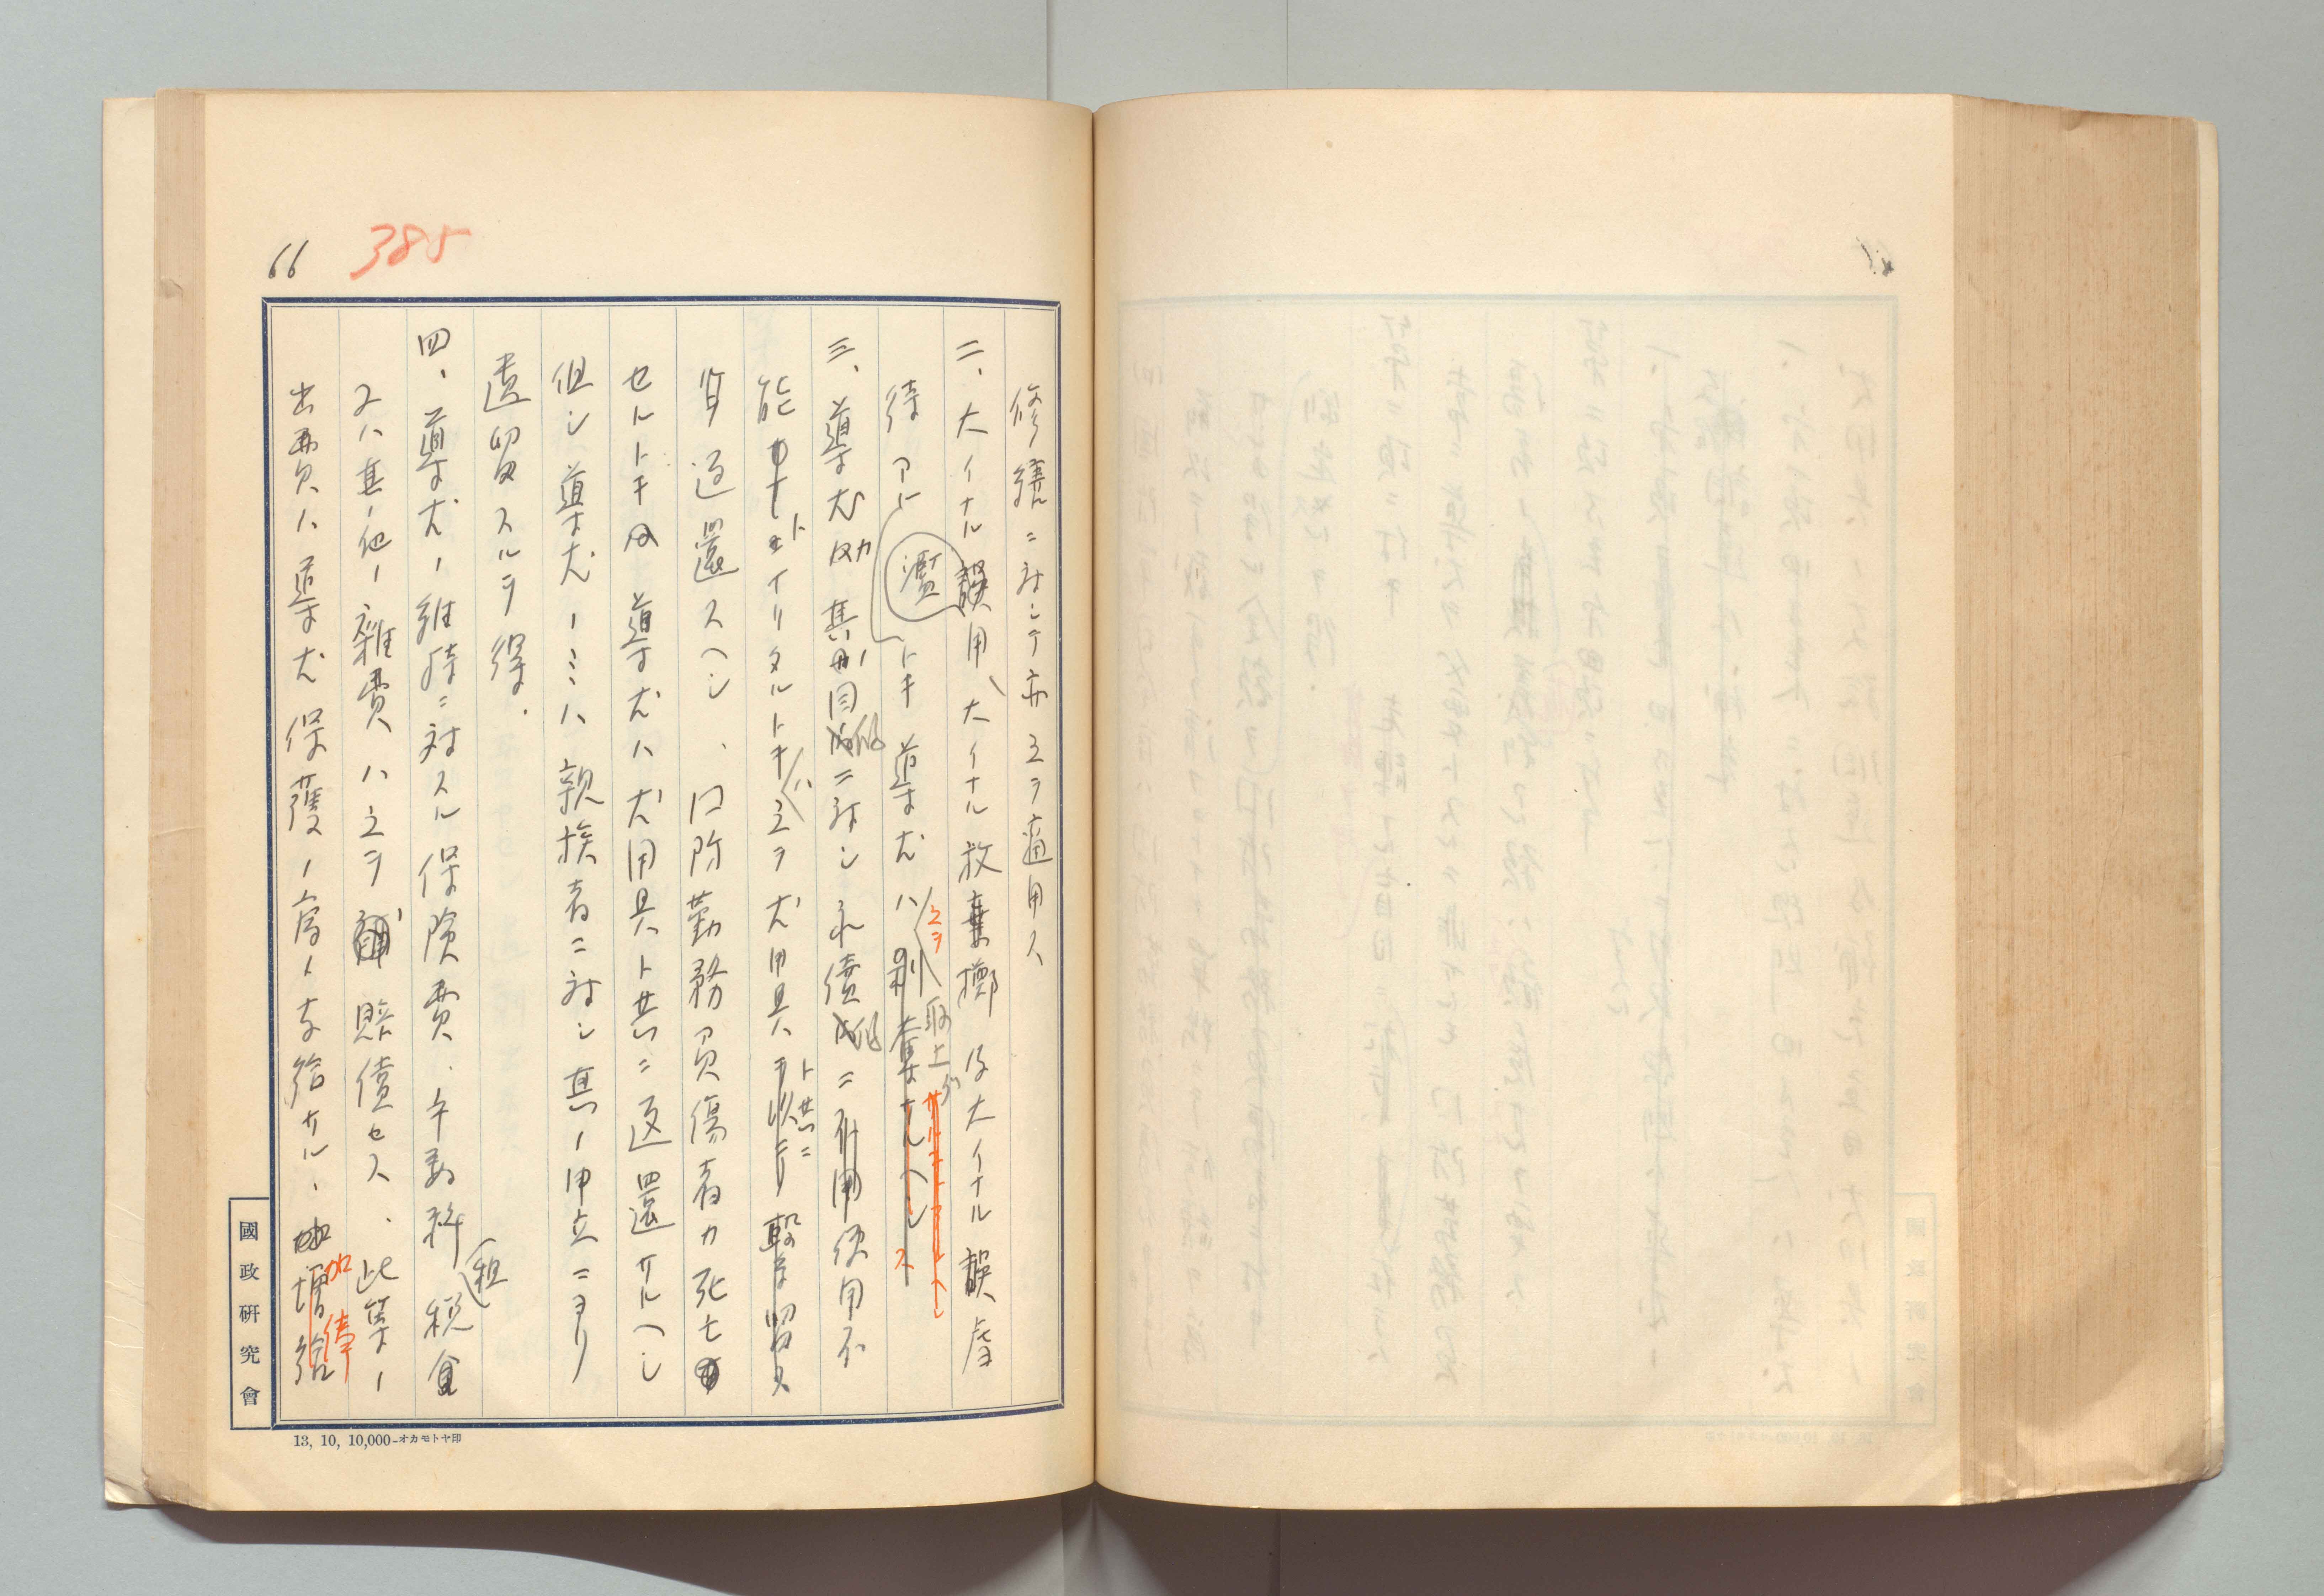 66
385
修繕ニ対シテ亦之ヲ適用ス
二、大イナル誤用、大イナル放棄擲及大イナル誤虐
待アルトキ導犬ハ剥奪サルヘシ
濫
之ヲ
取上ゲ
ス
三、導犬カ其ノ目的ニ対シ永続的ニ使用不
能トナリタルトキハ之ヲ犬用具
ト共ニ
返還スヘシ、同時勤務負傷者カ死亡
セルトキ導犬ハ犬用具ト共ニ返還サルヘシ
但シ導犬ノミハ親族者ニ対シ其ノ申立ニヨリ
遺留スルヲ得.
四、導犬ノ維持ニ対スル保険費、手数料税金
租
又ハ其ノ他ノ雑費ハ之ヲ賠償セス、此等ノ
出費ハ導犬保護ノ為ノ支給サル、増給
加
俸
國政研究會
13, 10, 10,000-オカモトヤ印